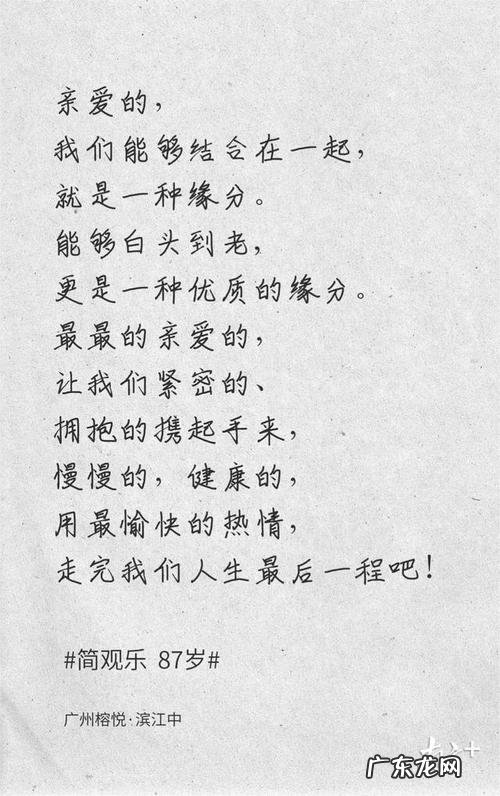 亲爱的，
我们能够结合在一起，
就是一种缘分。
能够白头到老，
更是一种优质的缘分。
最最的亲爱的，
让我们紧密的、
拥抱的携起手来，
慢慢的，健康的，
用最愉快的热情，
走完我们人生最后一程吧！
#简观乐 87岁#
广州榕悦·滨江中
广东龙网